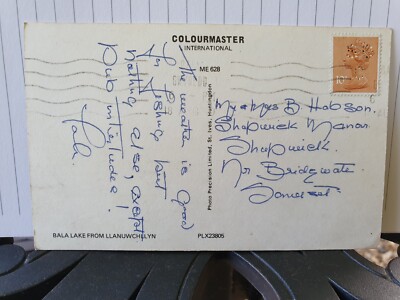 COLOURMASTER
INTERNATIONAL
ME 628
The weather is good
for fishing but
nothing else, except
Pub interludes!
Photo Precision Limited, St. Ives, Huntingdon
B Hobson.
Shapwick Manor
Shapwick.
Nr Bridgwater
Somerset
BALA LAKE FROM LLANUWCHLLYN
PLX23805